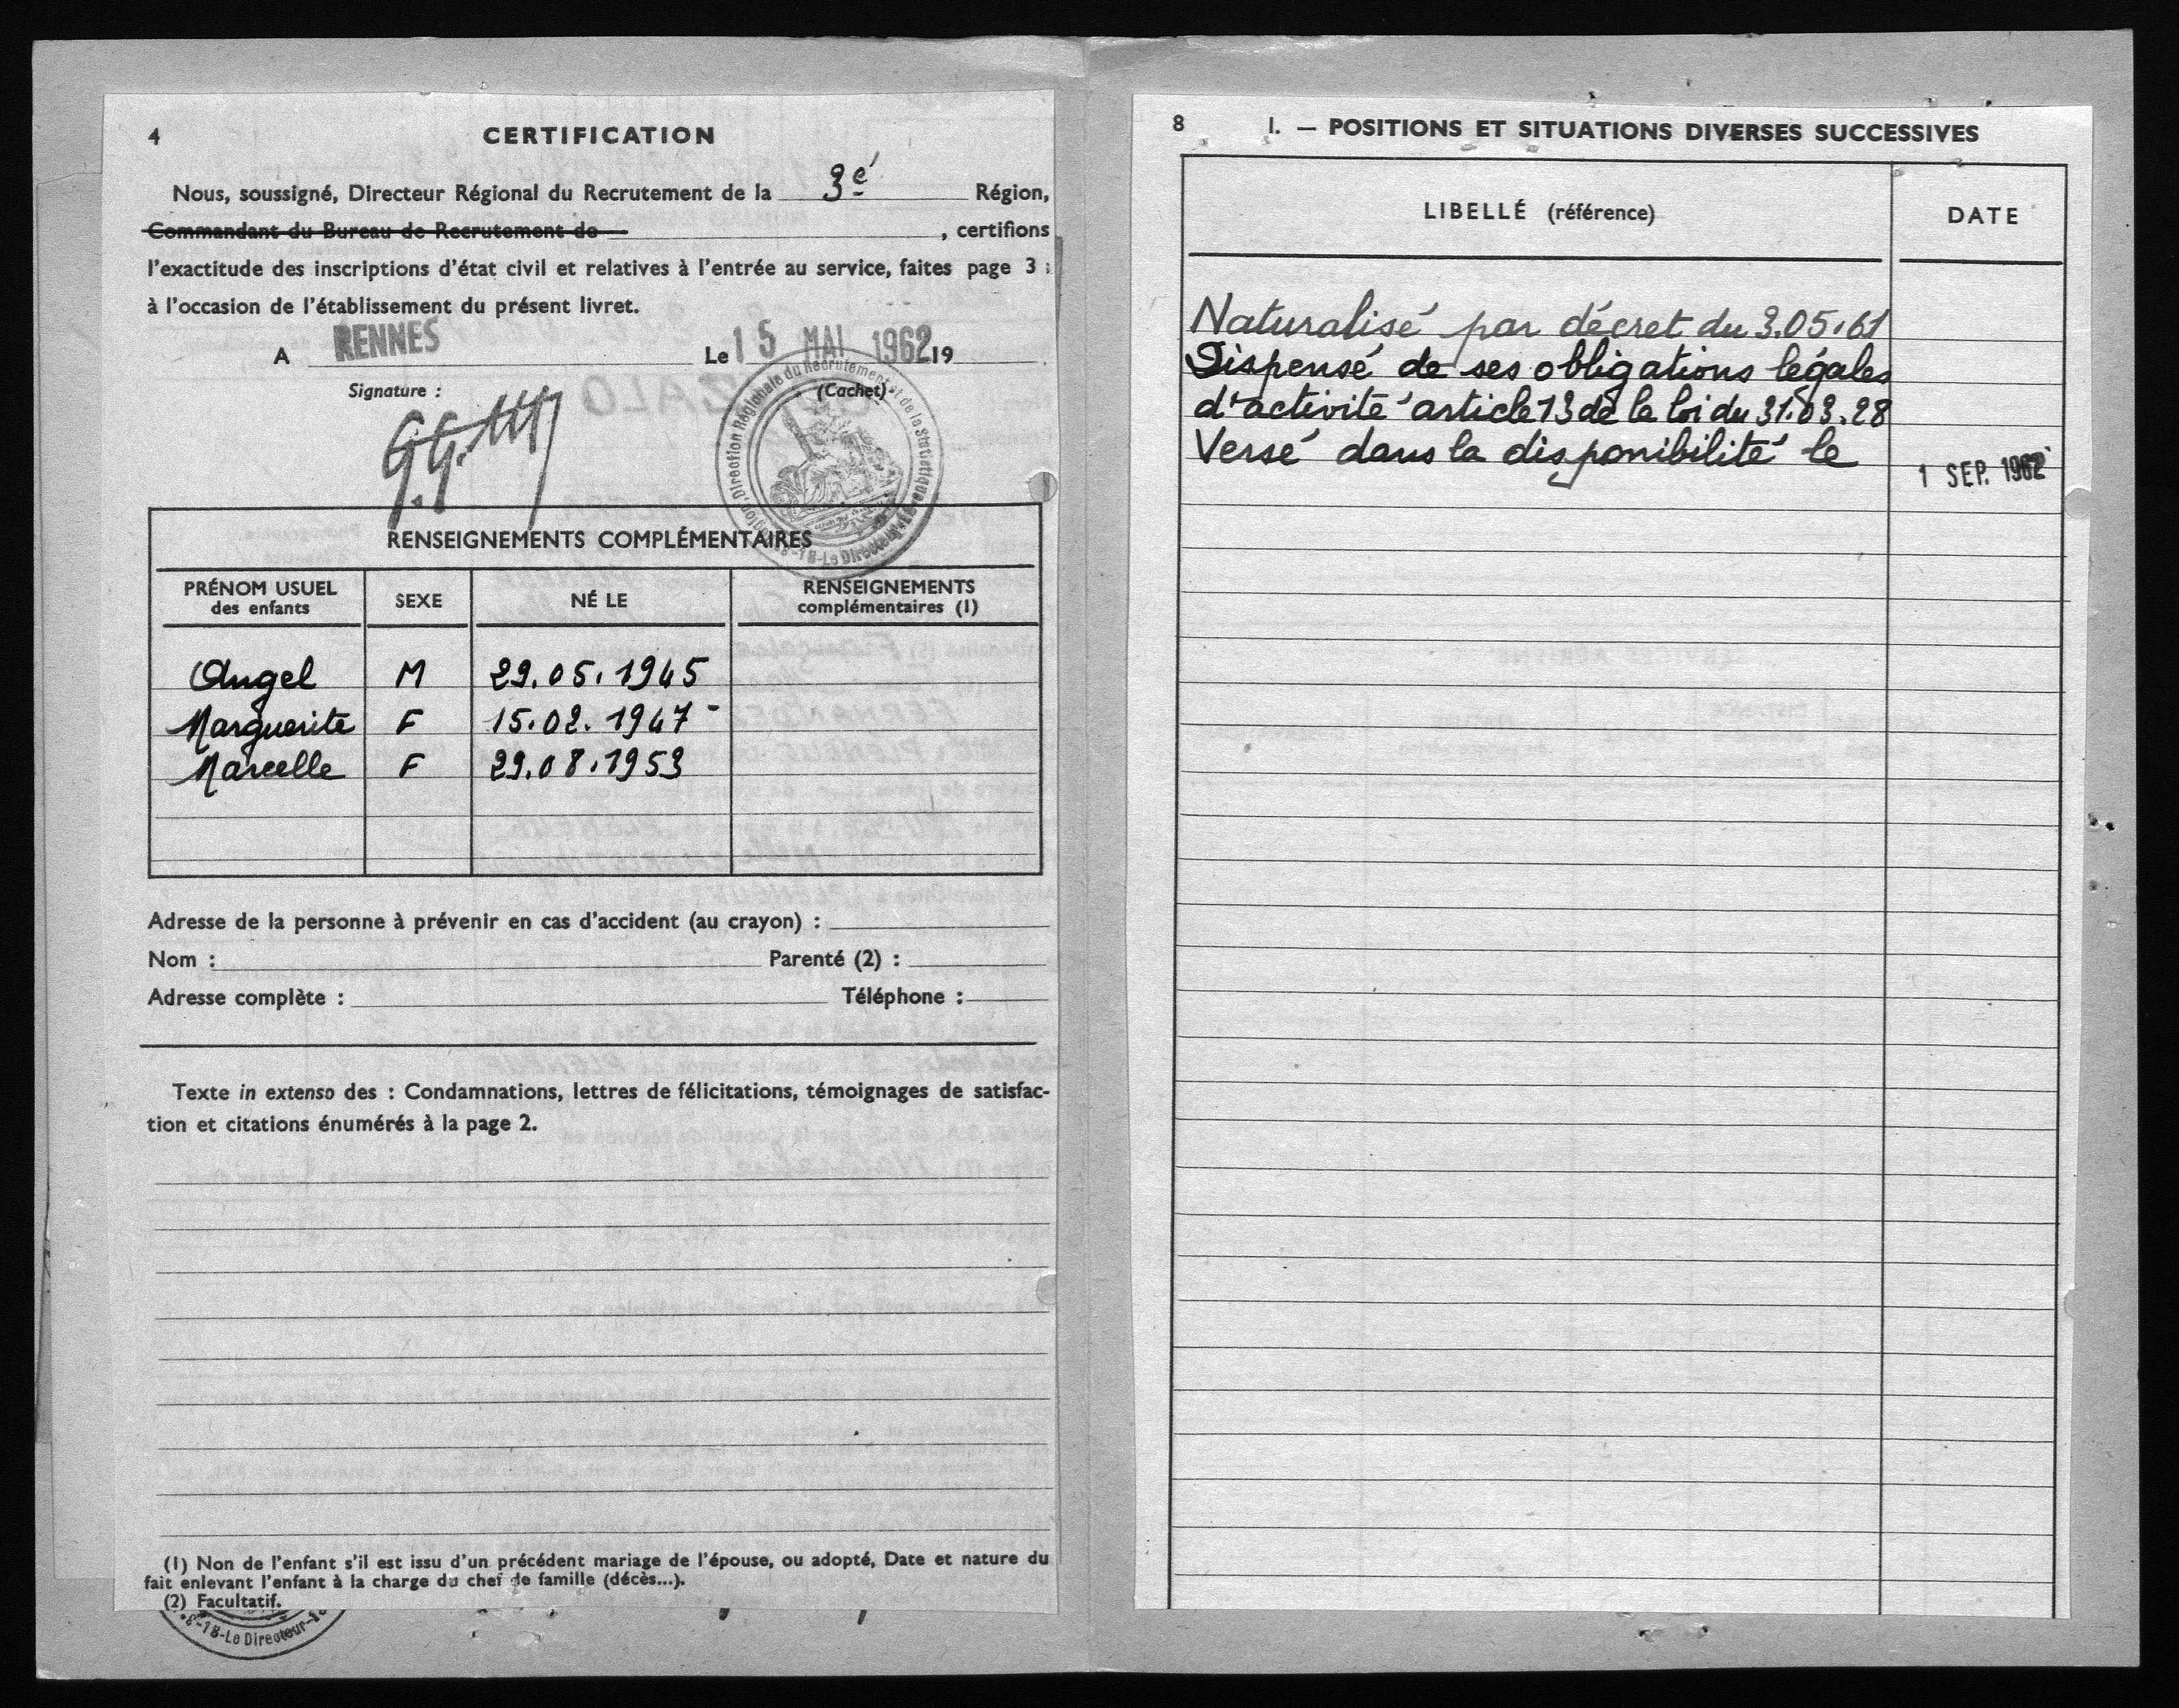 4
CERTIFICATION
Nous, soussigné, Directeur Régional du Recrutement de la 3é Région,
Commandant du Bureau de Recrutement de , certifions
l'exactitude des inscriptions d'état civil et relatives à l'entrée au service, faites page 3 :
à l'occasion de l'établissement du présent livret.
A RENNES Le 15 MAI 1962 19
Signature : (Cachet)
RENSEIGNEMENTS COMPLÉMENTAIRES
PRÉNOM USUEL des enfants SEXE NÉ LE RENSEIGNEMENTS complémentaires (1)
Angel M 29.05.1945
Marguerite F 15.02.1947 -
Marcelle F 29.08.1953
Adresse de la personne à prévenir en cas d'accident (au crayon) :
Nom : Parenté (2) :
Adresse complète : Téléphone :
Texte in extenso des : Condamnations, lettres de félicitations, témoignages de satisfac-
tion et citations énumérés à la page 2.
(1) Non de l'enfant s'il est issu d'un précédent mariage de l'épouse, ou adopté, Date et nature du
fait enlevant l'enfant à la charge du chef de famille (décès...).
(2) Facultatif.
-18-Le Directeur-
8
I. — POSITIONS ET SITUATIONS DIVERSES SUCCESSIVES
LIBELLÉ (référence) DATE
Naturalisé par décret du 3.05.61
Dispensé de ses obligations légales
d'activité article 13 de la loi du 31.03.28
Versé dans la disponibilité le 1 SEP. 1962